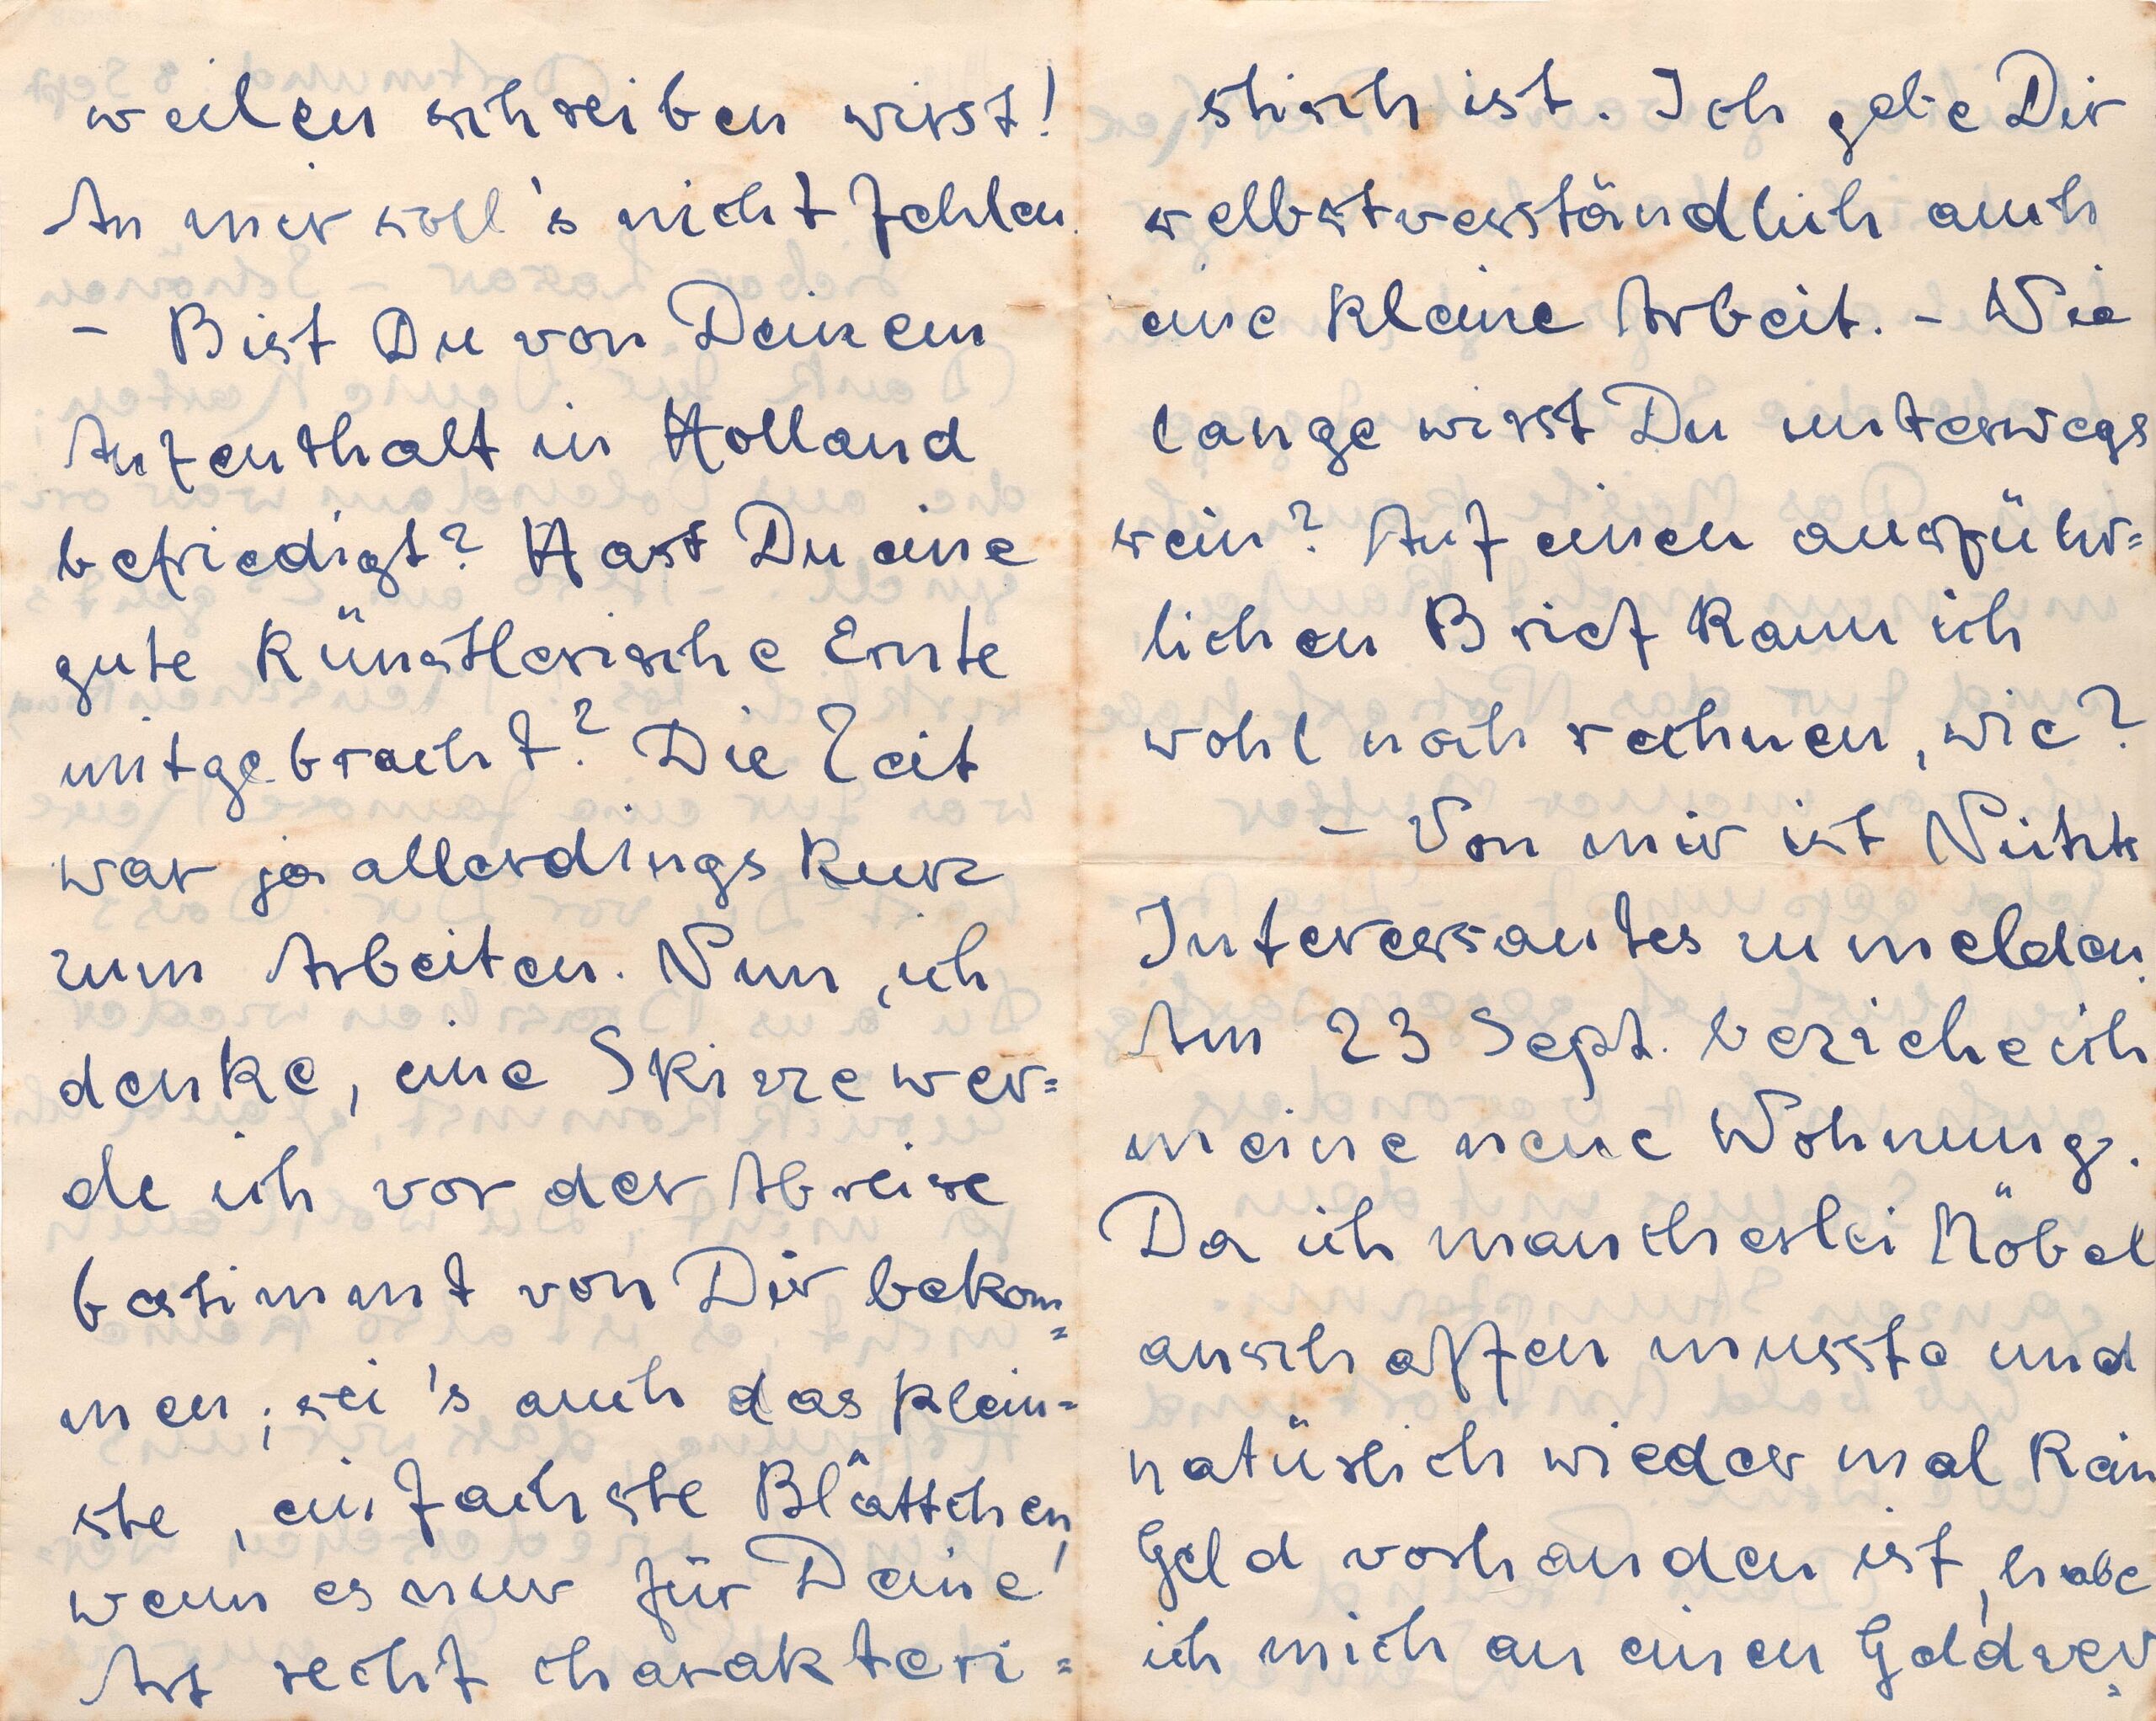 weilen schreiben wirst!
An mir soll's nicht fehlen.
- Bist Du von Deinem
Aufenthalt in Holland
befriedigt? Hast Du eine
gute künstlerische Ernte
mitgebracht? Die Zeit
war ja allerdings kurz
zum Arbeiten. Nun, ich
denke, eine Skizze wer=
de ich vor der Abreise
bestimmt von Dir bekom=
men; sei's auch das klein=
ste, einfachste Blättchen,
wenn es nur für Deine
Art recht charakteri=
stisch ist. Ich gebe Dir
selbstverständlich auch
eine kleine Arbeit. - Wie
lange wirst Du unterwegs
sein? Auf einen ausführ=
lichen Brief kann ich
wohl noch rechnen, wie?
- Von mir ist Nichts
Interessantes zu melden.
Am 23 Sept. beziehe ich
meine neue Wohnung.
Da ich mancherlei Möbel
anschaffen musste und
natürlich wieder mal kein
Geld vorhanden ist, habe
ich mich an einen Geldver=